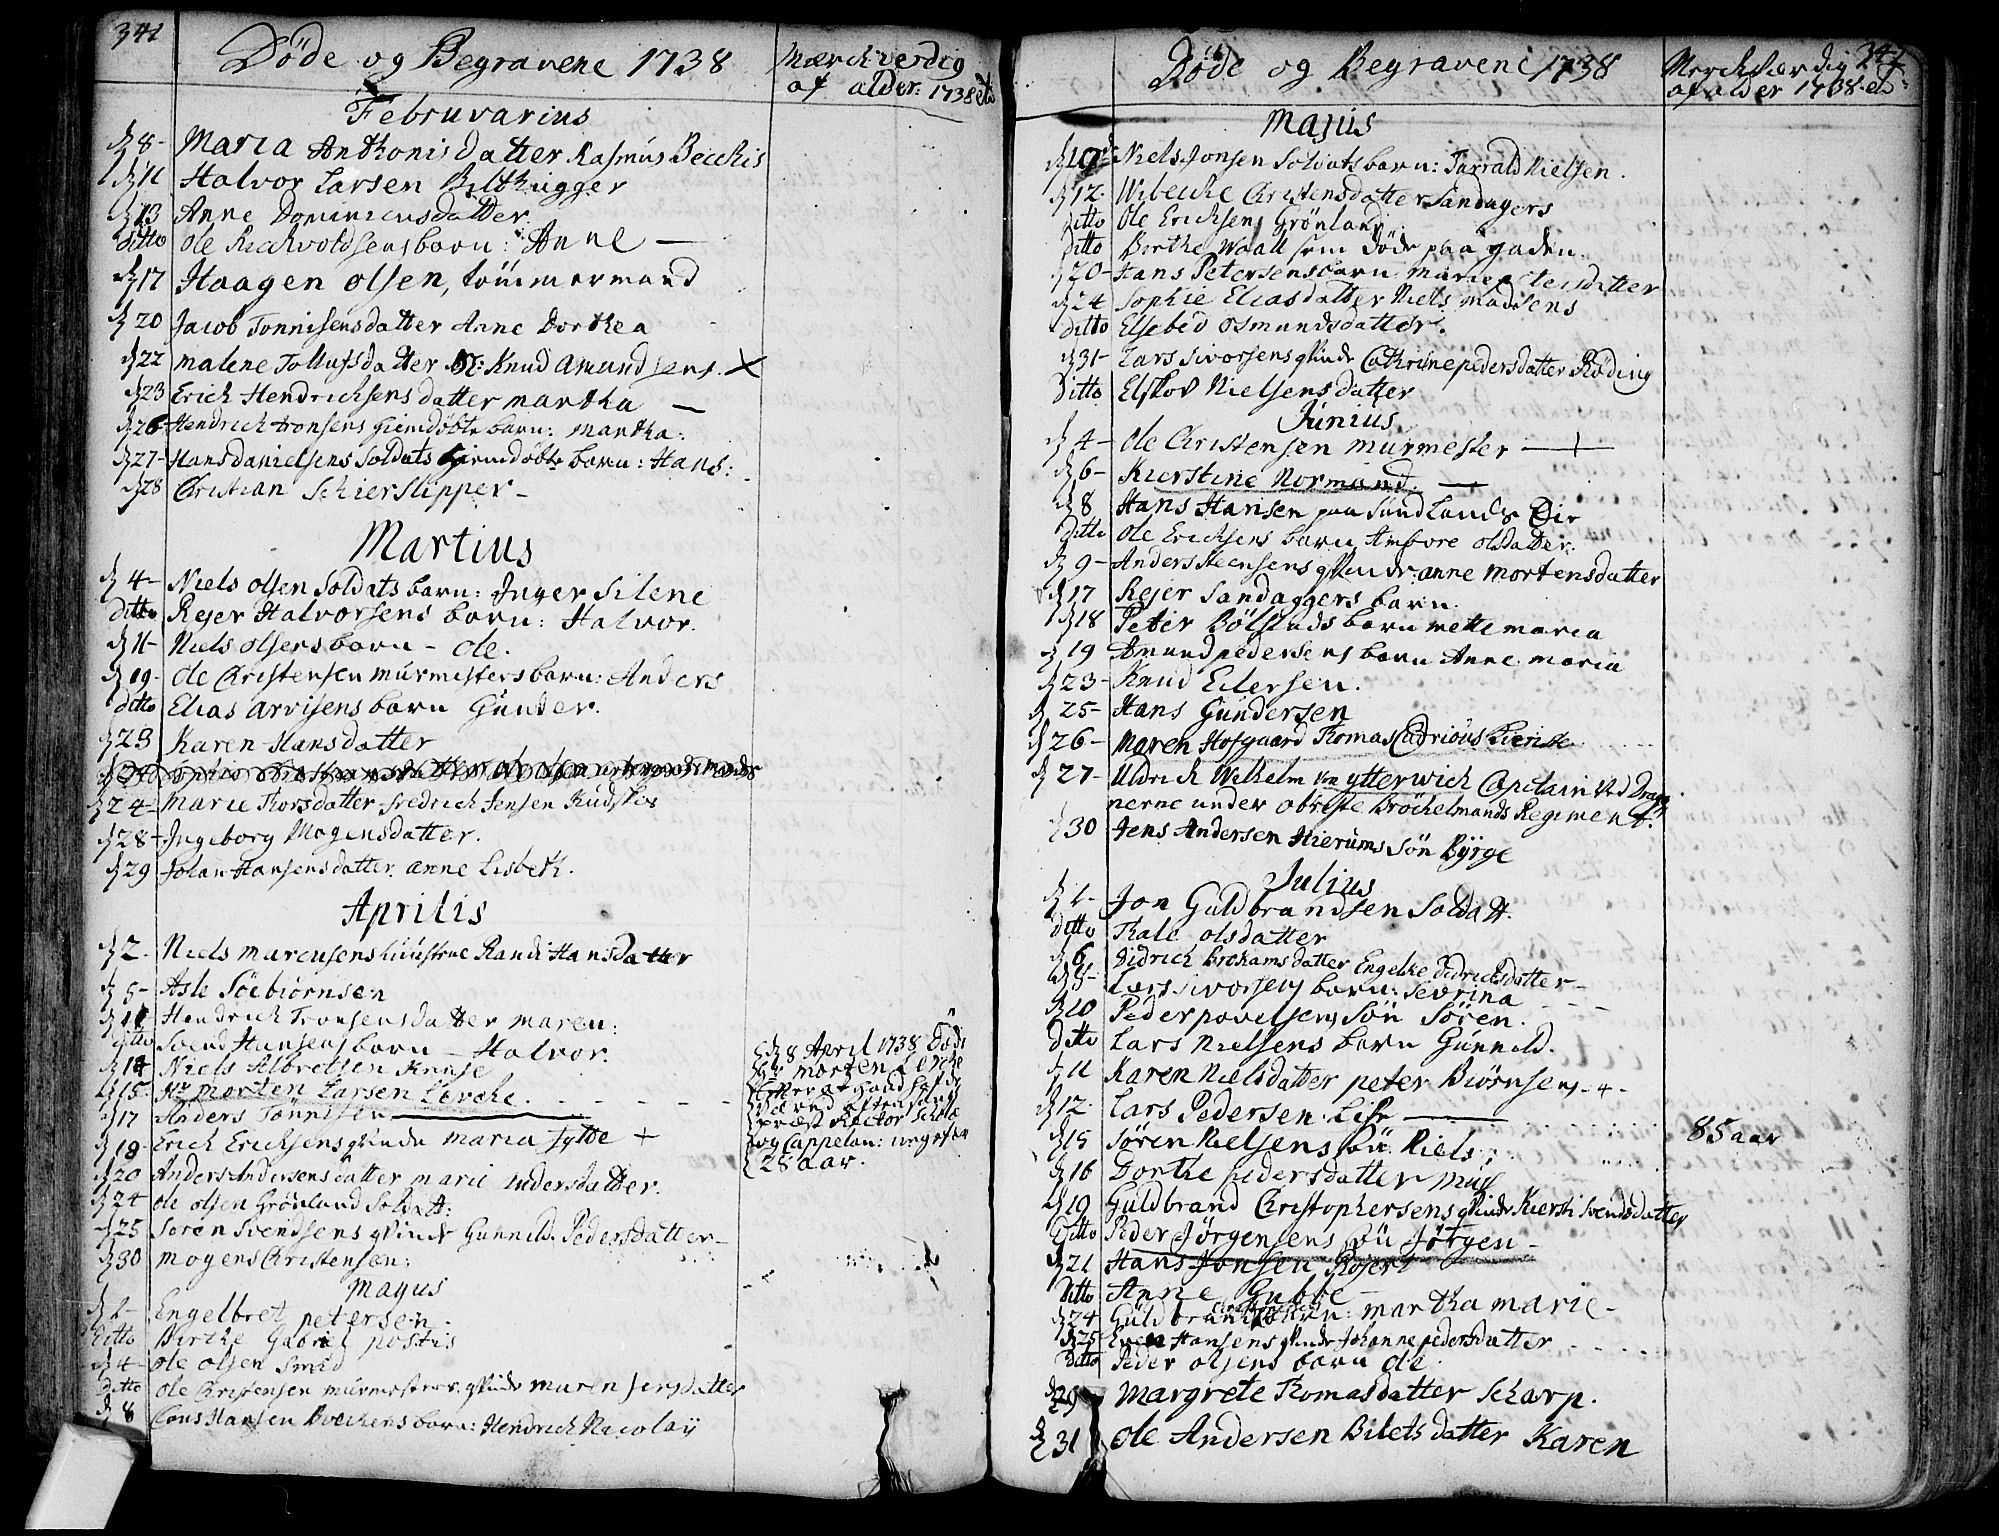 341
Döde og Begravene 1738
Mærckverdig
af alder: 1738 etc
Februvarius
d 8- Maria Anthonis datter Rasmus Becchis
d 11 Halvor Larsen Bilthugger
d 13 Anne Dominicusdatter.
ditto Ole Reichvoldsens barn: Anne —
d 17 Haagen Olsen, tömmermand
d 20 Jacob Tonnisens datter Anne Dorthea
d 22 Malene Tollufsdatter Knud Amundsens. X
d 23 Erich Hendrichsens datter Martha —
d 26 Hendrich Tronsens hiemdöbte barn: Martha:
d 27- Hans Danielsens Soldats hiemdöbte barn: Hans:
d 28 Christian Schierslipper -
Martius
d 4- Niels Olsen Soldats barn: Inger Silene
ditto Rejer Halvorsens barn: Halvor.
d 11- Niels Olsens barn - Ole.
d 19- Ole Christensen murmesters barn: Anders
ditto Elias Arvisens barn Gunder.
d 23 Karen Hansdatter
d 24- Marie Thorsdatter Fredrich Jensen Kudskes
d 28- Ingeborg Mogensdatter.
d 29 Johan Hansens datter. Anne Lisbeth.
Aprilis
d 2- Niels Marcusens hüustrue Randi Hansdatter
d 5- Asle Söebiörnsen
d 11 Hendrich Tronsens datter Maren:
ditto Svend Hansens barn - Halvor.
d 14 Niels Albretsen Knuse
d 15- Hr Morten Larsen Lerche.
d 17 Anders Tönnisen
d 18- Erich Ericksens qvinde Maria Jytte +
d 20 Anders Andersens datter Marie Andersdatter.
d 24 Ole Olsen Grönland Soldat:
d 25 Soren Svendsens qvinde Gunnild Pedersdatter-
d 30 Mogens Christensen:
d 8 April 1738 Döde
Hr Morten Lerche
Efter at hand hafde
været
præst Rector Scholæ
og Cappelan: ungefær
28 aar.
Majus
d 2- Engelbret Petersen.
ditto Birthe Gabriel Postis
d 4- Ole Olsen Smed
ditto Ole Christensen murmesters qvinde Maren Jensdatter
d 8 Hansen Boeckens barn: Hendrich Nicolaÿ
342
Döde og Begravene 1738
Merchværdig
af alder 1738. etc:
Majus
d 10 Niels Jonsen Soldats barn: Tarrald Nielsen.
d 12- Wibecke Christensdatter Sandagers
ditto Ole Ericksens Grönland
ditto Birthe Waall som döde paa gaden.
d 20- Hans Petersens barn
d 24 Sophie Eliasdatter Niels Madsens
ditto Elsebed Osmundsdatter.
d 31- Lars Sivorsens qvinde Cathrine Pedersdatter Röding
Ditto Elskov Nielsens datter
Junius
d 4- Ole Christensen murmester
d 6- Kierstine Normand. —
d 8 Hans Hansen paa Sundlands Eir
ditto Ole Ericksens barn Anbore Olsdatter.
d 9- Anders Steensens qvinde: Anne Mortensdatter
d 17 Rejer Sandaggers barn
d 18 Peter Bölstads barn Mette Maria
d 19 Amund Pedersens barn Anne Maria
d 23- Knud Eilersen.
d 25- Hans Gundersen
d 26- Maren Hofgaard Thomas
d 27- Uldrich Wilhelm von Ytterwich Capitain ved Drago
nerne under Obriste Bröchelmands Regiment.
d 30 Jens Andersen Hierums Sön Byrge
Julius
d 1- Jon Guldbrandsen Soldat.
ditto Thale Olsdatter
d 6 Didrich Brohams datter Engelke Didricksdatter-
Lars Sivorsens barn: Sevrina
d 10 Peder Povelsens Sön Sören.
ditto Lars Nielsens barn Gunnild.
d 11 Karen Nielsdatter Peter Biörnsens -+-
d 12- Lars Pedersen
d 15 Sören Nielsens Niels:
85 aar
d 16 Dorthe Pedersdatter
d 19 Guldbrand Christophersens qvinde Kiersti Svendsdatter
Ditto Peder Jörgensens Jörgen-
d 21 Hans Jonsen
Ditto Anne
d 24 Guldbrand barn: Martha Marie-
d 25- Even Hansens qvinde Johanne Pedersdatter
Ditto Peder Olsens barn Ole
d 29 Margrete Thomasdatter Scharp.
d 31 Ole Andersen Bilets datter Karen